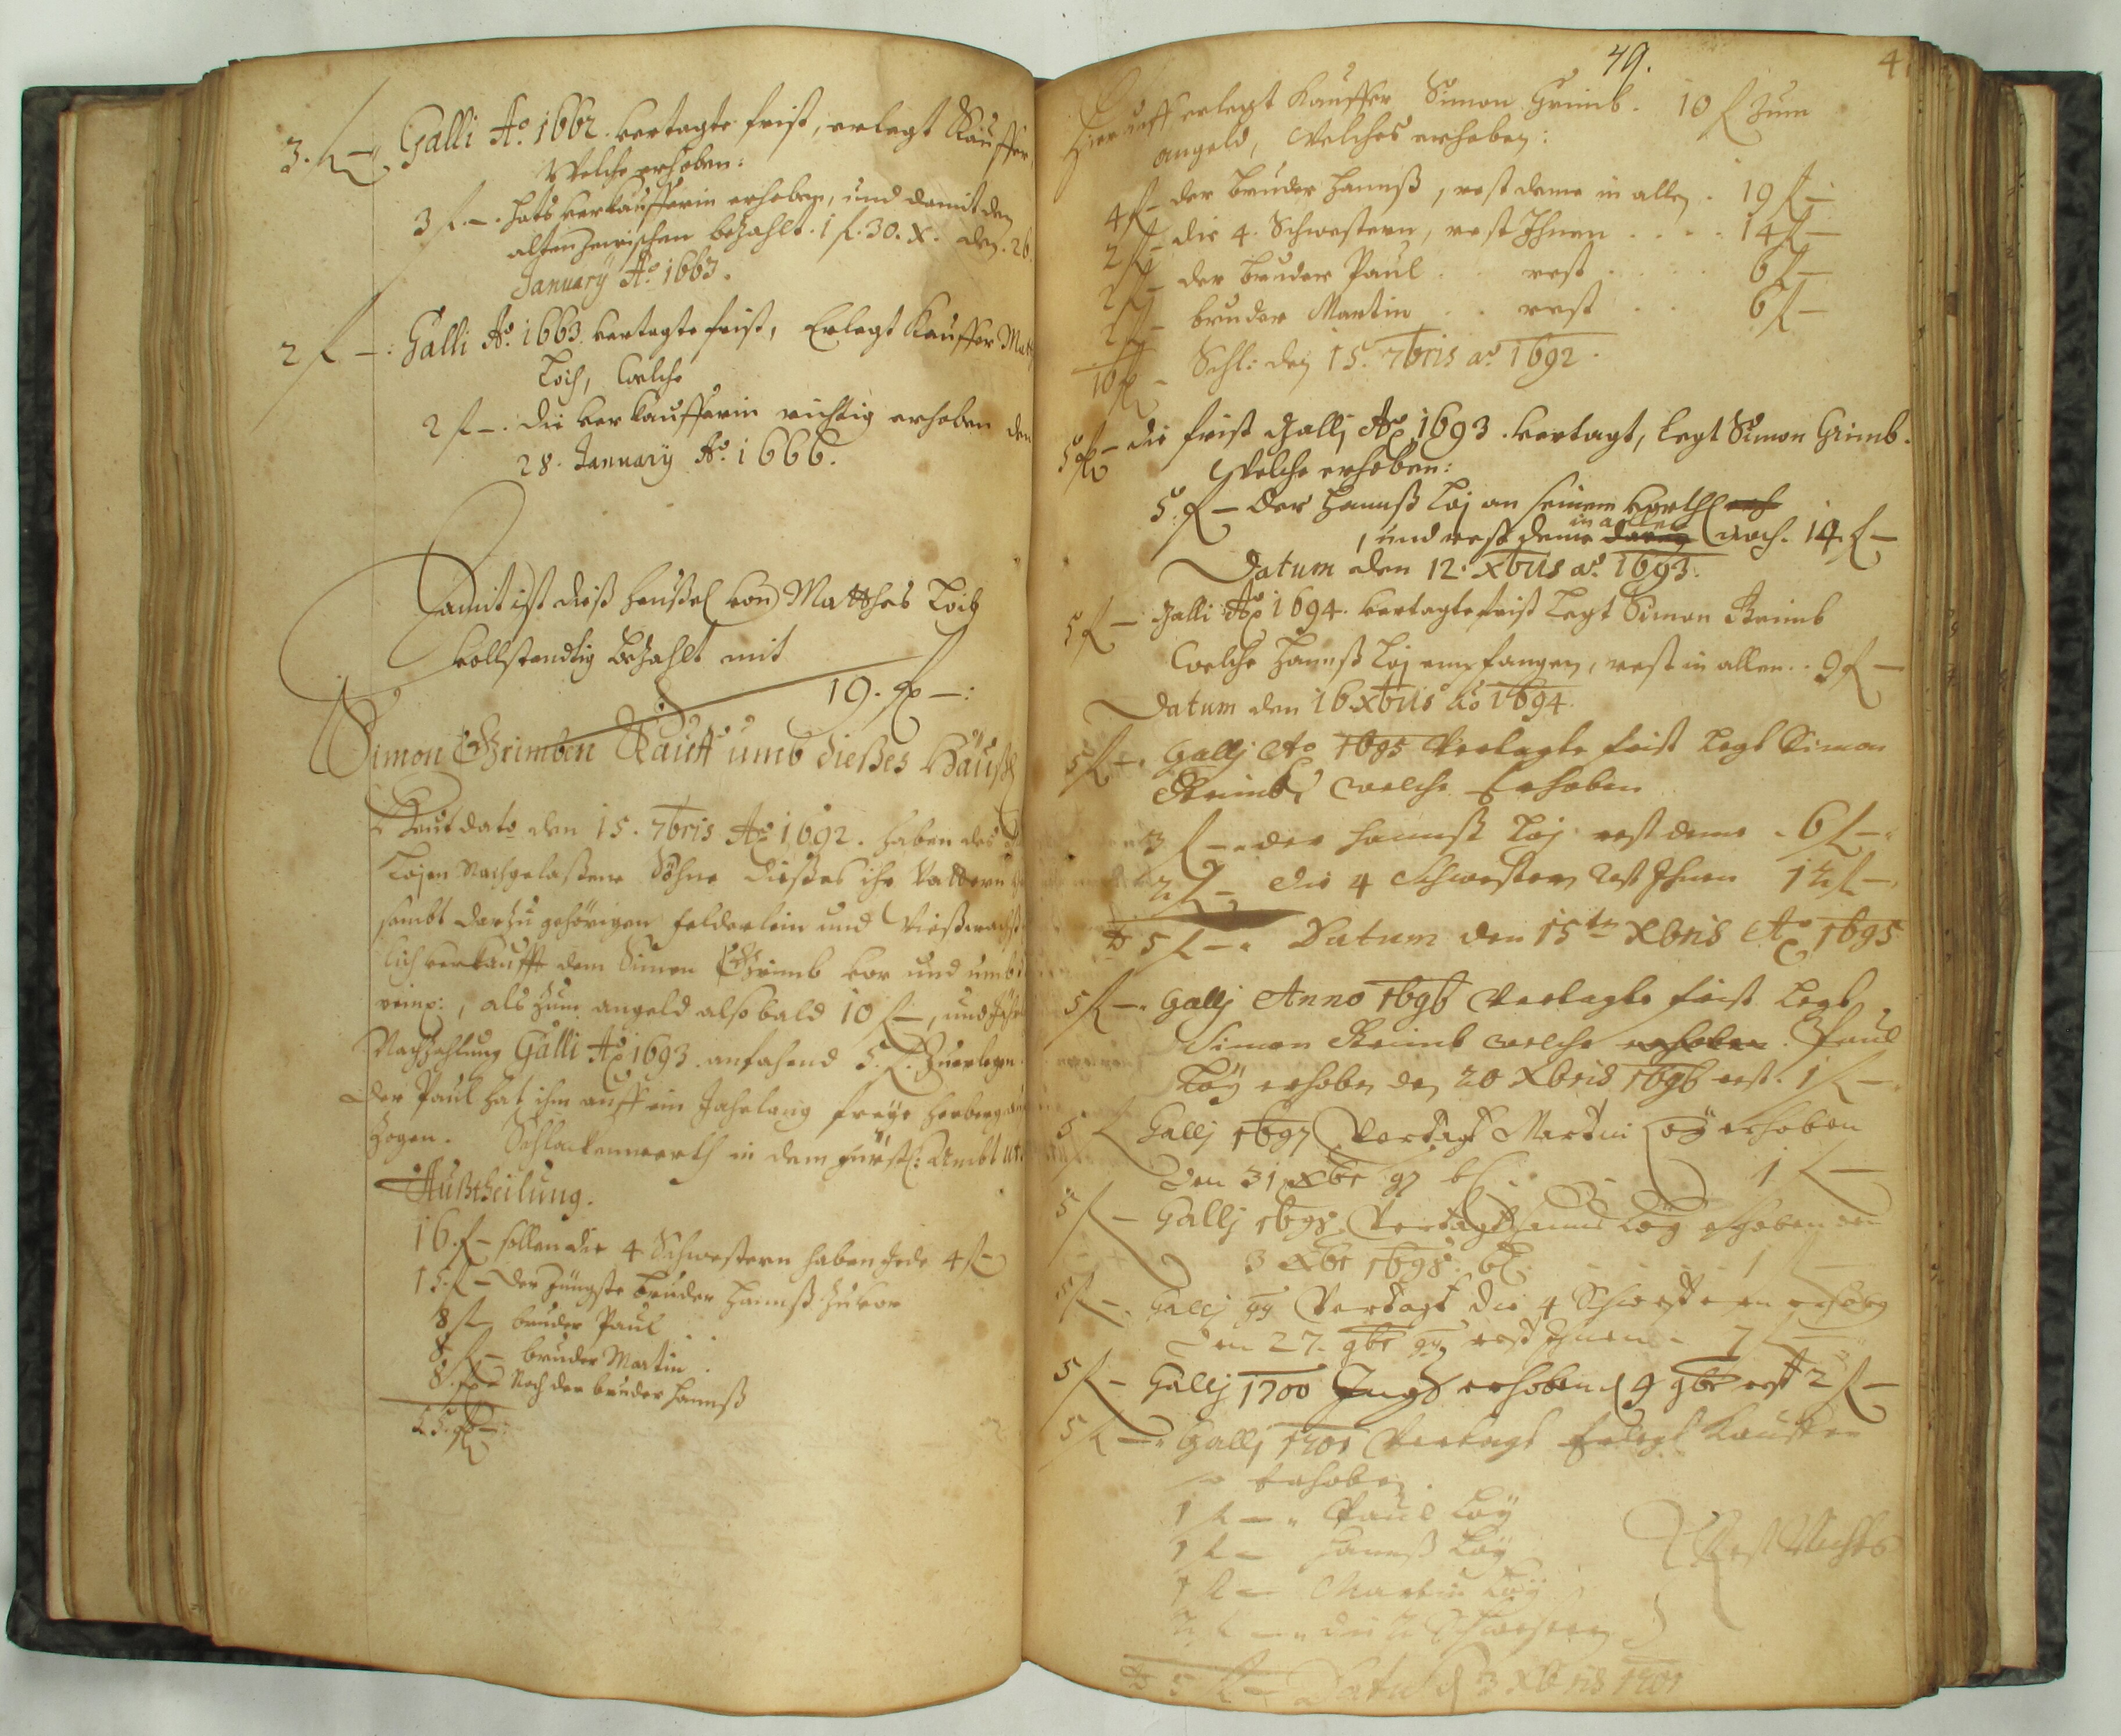 3. f — Galli Ao. 1662. vertagte frist, erlegt Kauffer,
Welche erhoben:
3 f. —. hats verkaufferin erhoben, und damit den
alten bezahlt. 1 f. 30. x. den. 26
January Ao. 1663.
2 f —: Galli Ao. 1663. vertagte frist, Erlegt Kauffer
Loih, Welche
2 f —. die verkaufferin richtig erhoben den
28. January Ao. 1666.
Damit ist dieß heußel von Matthes Loih
vollstendtig bezahlt mit
19. f —:
Simon Grimben Kauff umb dießes Häußl
Heut dato den 15. 7bris Ao 1692. haben des
Lojen Nachgelaßene Söhne dießes ihr Vattern
sambt darzu gehörigen felderlein und Wießwachß
lich verkaufft dem Simon Grimb vor und umb
reinp:, als zum angeld alsobald 10 f —, und
Nachzahlung Galli Ao 1693. anfahend 5. f. Zuerlegen.
Der Paul hat ihm auff ein Jahrlang freye herberg
zogen. Schlackenwerth in dem fürstl: Ambt
Außtheilung.
16. f — sollen die 4 Schwestern haben Jede 4 f —
15. f — der Jüngste bruder Hannß zuvor
8 f — bruder Paul ..
8. f — bruder Martin .
8. f — Noch der bruder Hannß
55. f —:
49.
4
Hierauff erlegt Kauffer Simon Grimb. 10 f Zum
angeld, Welches erhoben:
4 f — der bruder Hannß, rest deme in allen . 19 f —
2 f — die 4. Schwestern, rest Ihnen .... 14 f —
2 f — der bruder Paul .. rest .... 6 f —
2 f — bruder Martin .. rest .. 6 f —
10 f — Schl: den 15. 7bris ao. 1692.
5 f — die frist Gallj Ao 1693. vertagt, legt Simon Grimb.
Welche erhoben:
5. f — Der Hannß Loj an seinem
in allen
, und rest deme noch. 14. f —
Datum den 12. xbris ao. 1693.
5 f — Galli Ao 1694. vertagte frist legt Simon Grimb
Welche Hannß Loj empfangen, rest in allen .. 9 f —
Datum den 16. xbris Ao 1694.
5 f —. Gallj Ao 1695 Vertagte frist legt Simon
Grimb, welche Erhoben
3 f — der Hannß Loj rest deme . 6 f —.
2 f — die 4 Schwestern Rest Ihnen 12 f —
5 f —. Datum den 15tn Xbris Ao 1695
5 f —. Gallj Anno 1696 Vertagte frist Legt
Simon Grimb welche erhoben. Paul
Loÿ erhoben den 20 Xbris 1696 rest. 1 f —.
5 f Gallj 1697 Vertagt Martin Loÿ erhoben
den 31 Xbr 97 1 f —
5 f — Gallj 1698 Vertagt Hannß Loÿ erhoben den
3 Xbr 1698. 1 f —
5 f —. Gallj 99 Vertagt die 4 Schwestern erhoben
den 27. 9br 99 rest Ihnen — 7 f —
5 f — Gallj 1700 erhoben 9 9br rest 2 f —
5 f —. Gallj 1701 Vertagt Erlegt Kauffer
so Erhoben.
1 f —. Paul Loÿ
1 f — Hannß Loÿ
1 f — Martin Loÿ
2 f —. die 4 Schwestern
Rest Nichts
5 f — Datum d 3 Xbris 1701